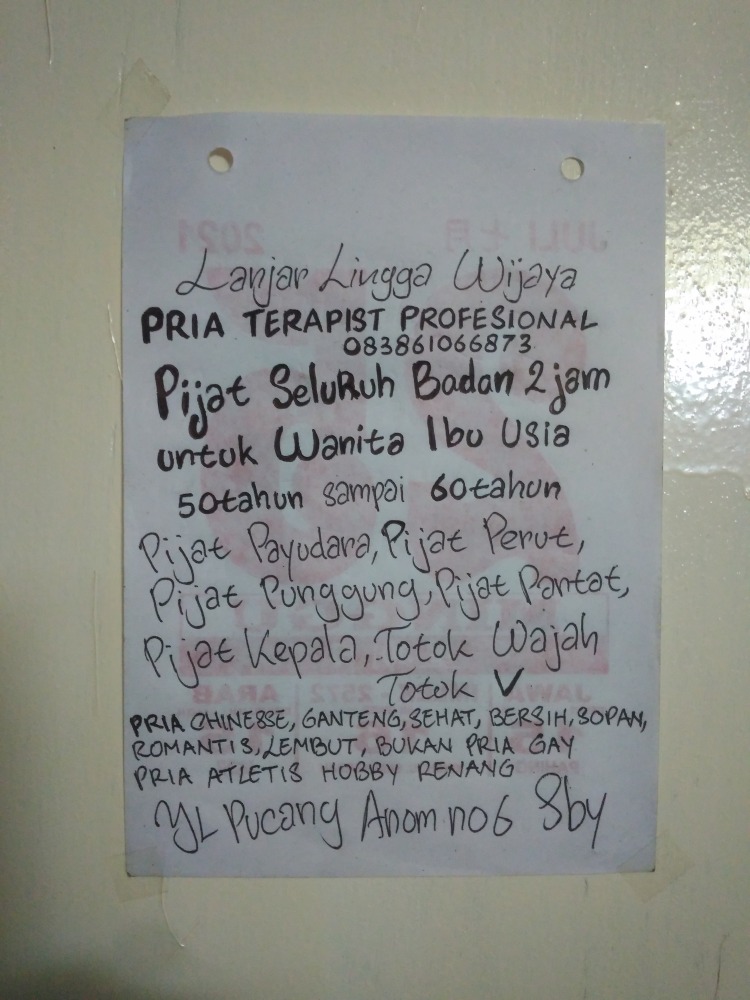 JULI 七月 2021
Lanjar Lingga Wijaya
PRIA TERAPIST PROFESIONAL
083861066873
Pijat SeluRuh Badan 2 jam
untuk Wanita Ibu Usia
50tahun sampai 60tahun
Pijat Payudara, Pijat Perut,
Pijat Punggung, Pijat Pantat,
Pijat Kepala, Totok Wajah
Totok V
JAWA 2572 ARAB
PRIA CHINESSE, GANTENG, SEHAT, BERSIH, SOPAN,
ROMANTIS, LEMBUT, BUKAN PRIA GAY
PRIA ATLETIS HOBBY RENANG
YL Pucang Anom no 6 Sby